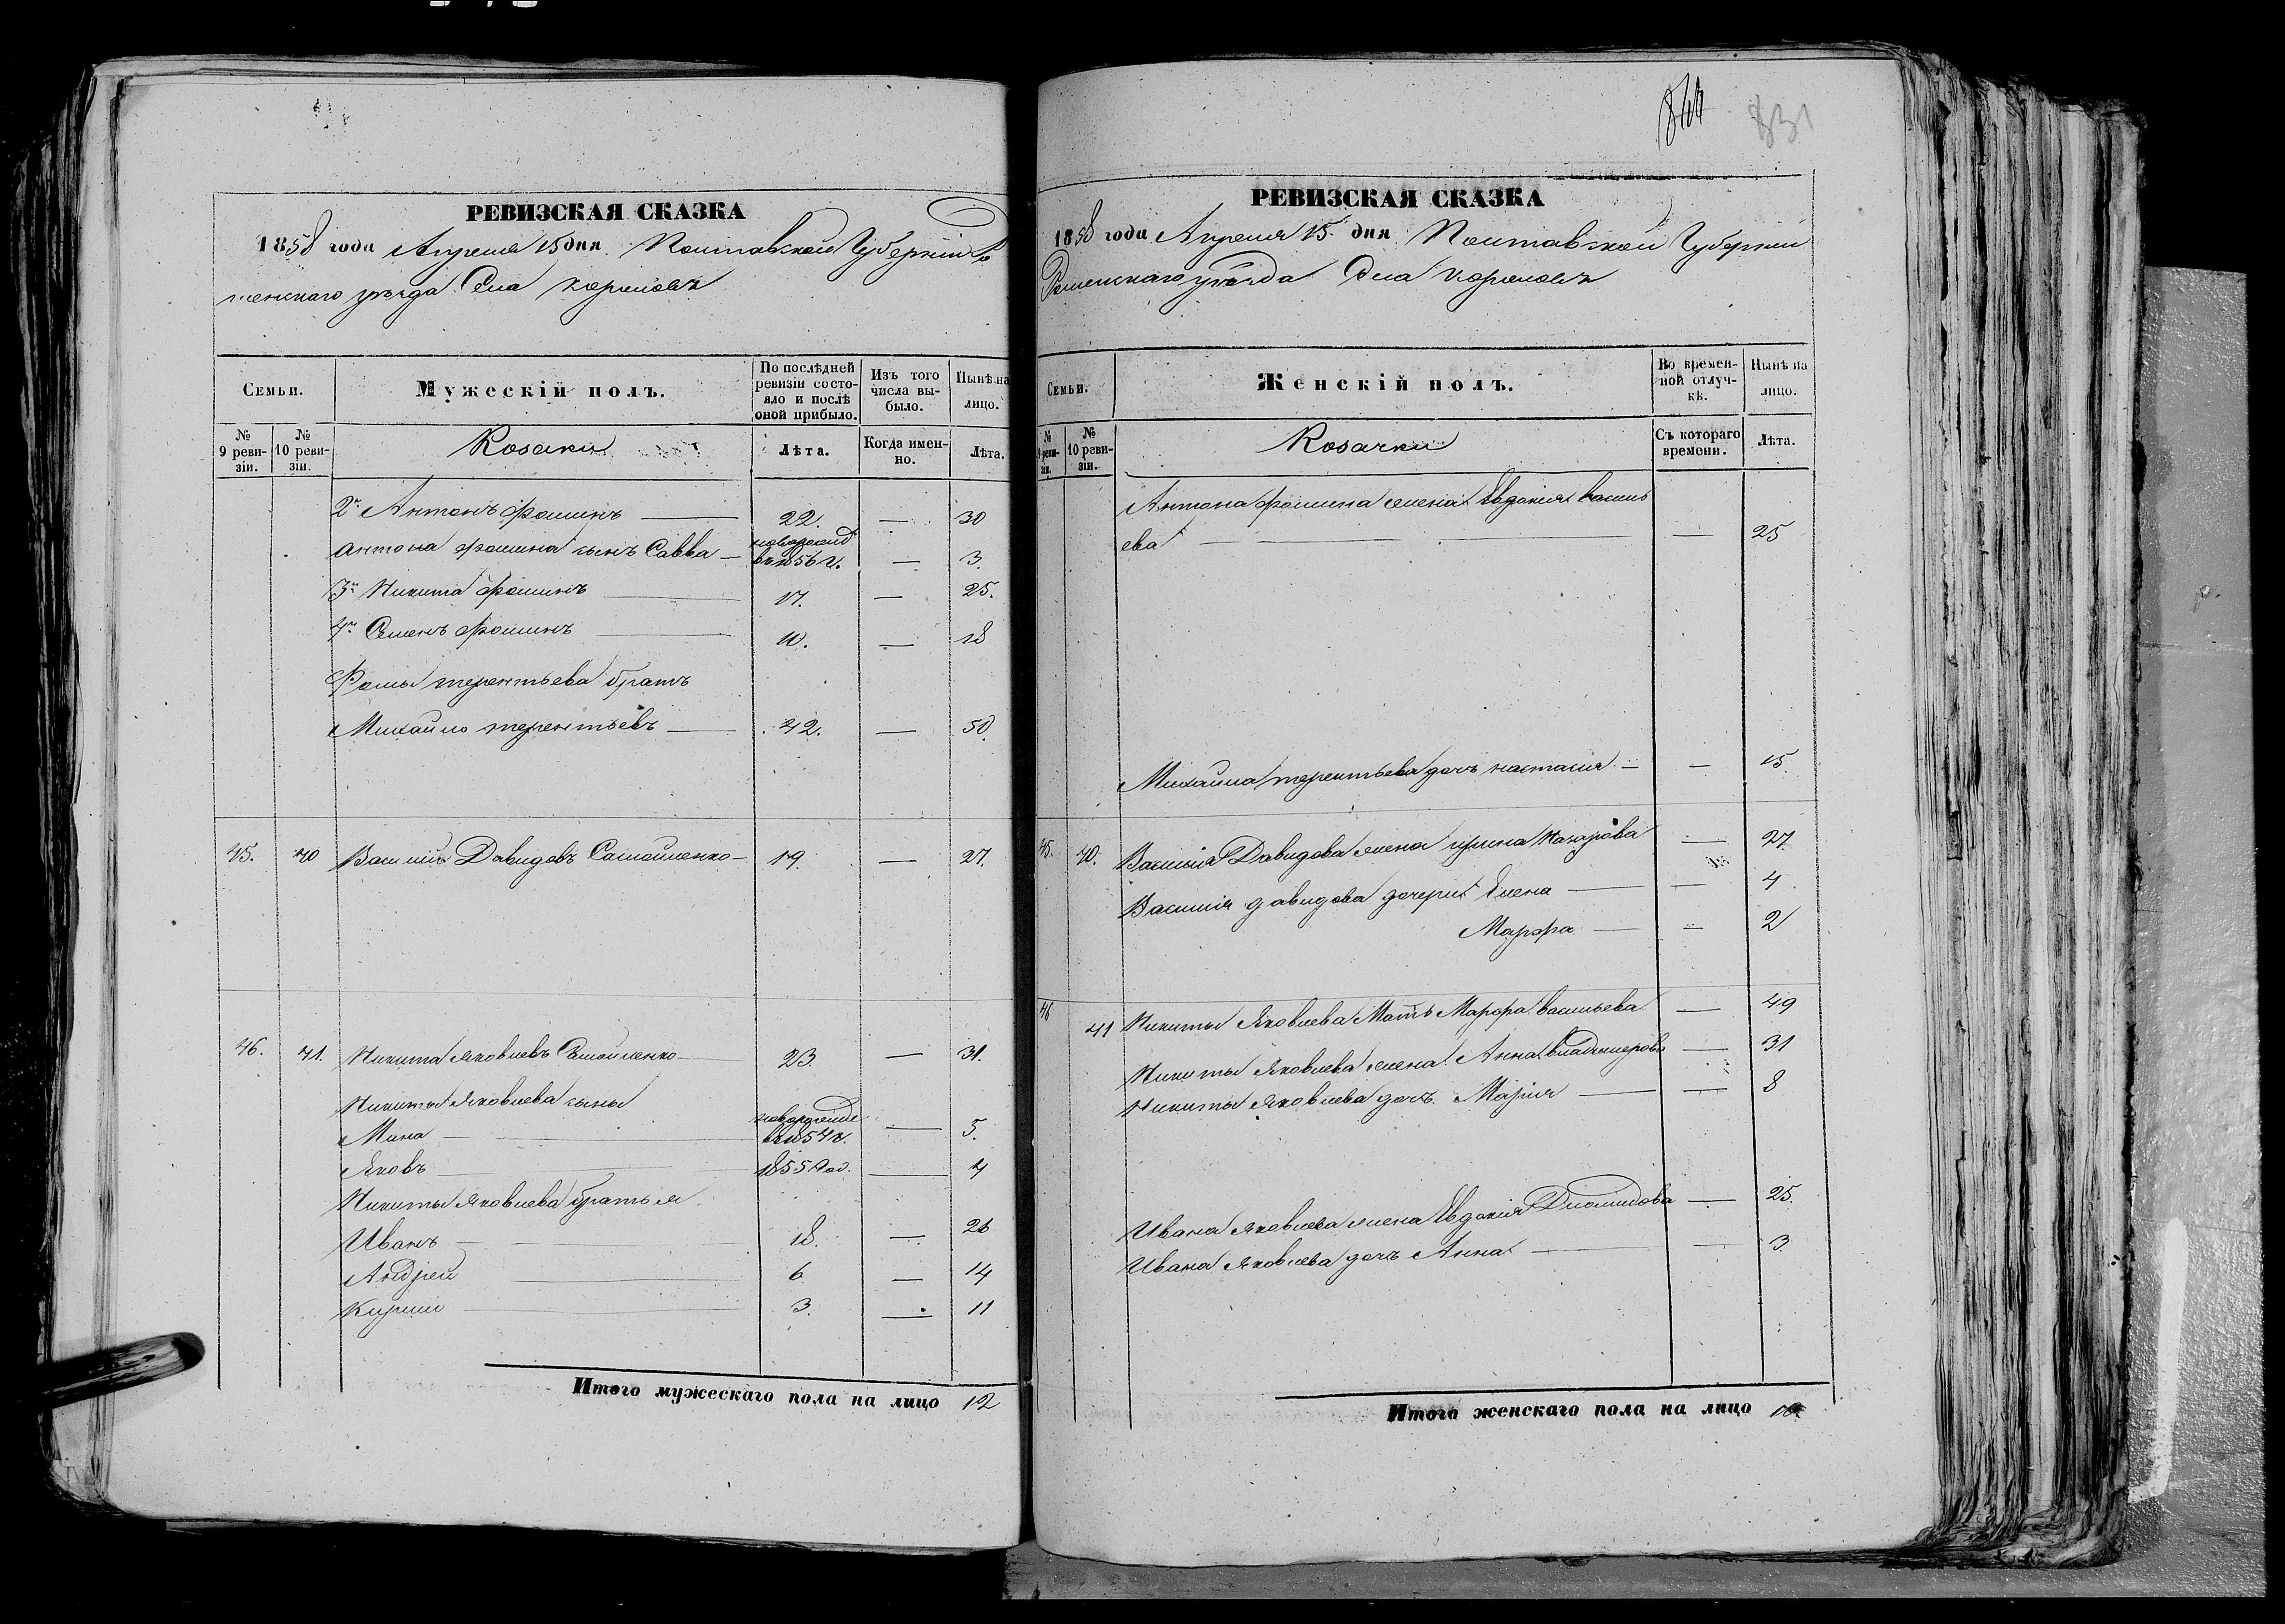 РЕВИЗСКАЯ СКАЗКА
1858 года Апреля 15 дня Полтавской Губерніи Ро
менскаго уѣзда Села
Семьи.
Мужескій полъ.
По послѣдней ревизіи состояло и послѣ оной прибыло.
Изъ того числа выбыло.
Нынѣ на лицо.
№ 9 ревизіи.
№ 10 ревизіи.
Козаки
Лѣта.
Когда именно.
Лѣта.
2й Антонъ Фоминъ — 22. — 30
Антона Фомина сынъ Савва — новорожд
въ 1856 г. — 3.
3й Никита Фоминъ — 17. — 25.
4й Семенъ Фоминъ — 10. — 18
Фомы терентьева братъ
Михайло терентьевъ — 42. — 50.
45. 40 Василій Давидовъ Самойленко — 19. — 27.
46. 41. Никита Яковлевъ Самойленко — 23. — 31.
Никиты Яковлева сыны
Мина — новорожде
въ 1854 г. — 5.
Яковъ — 1855 год. — 4
Никиты Яковлева братья
Иванъ — 18. — 26
Андрей — 6 — 14
Кирило — 3. — 11
Итого мужескаго пола на лицо 12
831
РЕВИЗСКАЯ СКАЗКА
1858 года Апреля 15 дня Полтавской Губерніи
Роменскаго уѣзда Села
Семьи.
Женскій полъ.
Во временной отлучкѣ.
Нынѣ на лицо.
№ 9 ревизіи.
№ 10 ревизіи.
Козачки
Съ котораго времени.
Лѣта.
Антона Фомина жена Евдокія Василь
ева — — 25
Михайла терентьева дочь настасия — — 15.
45. 40. Василія Давидова жена ирина Назарова — 27
Василія давидова дочери Елена — — 4
Марфа — — 2
46 41 Никиты Яковлева Мать Марфа васильева — 49
Никиты Яковлева жена Анна владимерова — 31
Никиты Яковлева дочь Марія — — 8
Ивана Яковлева жена Евдокія Диомидова — 25.
Ивана Яковлева дочь Анна — — 3.
Итого женскаго пола на лицо 10